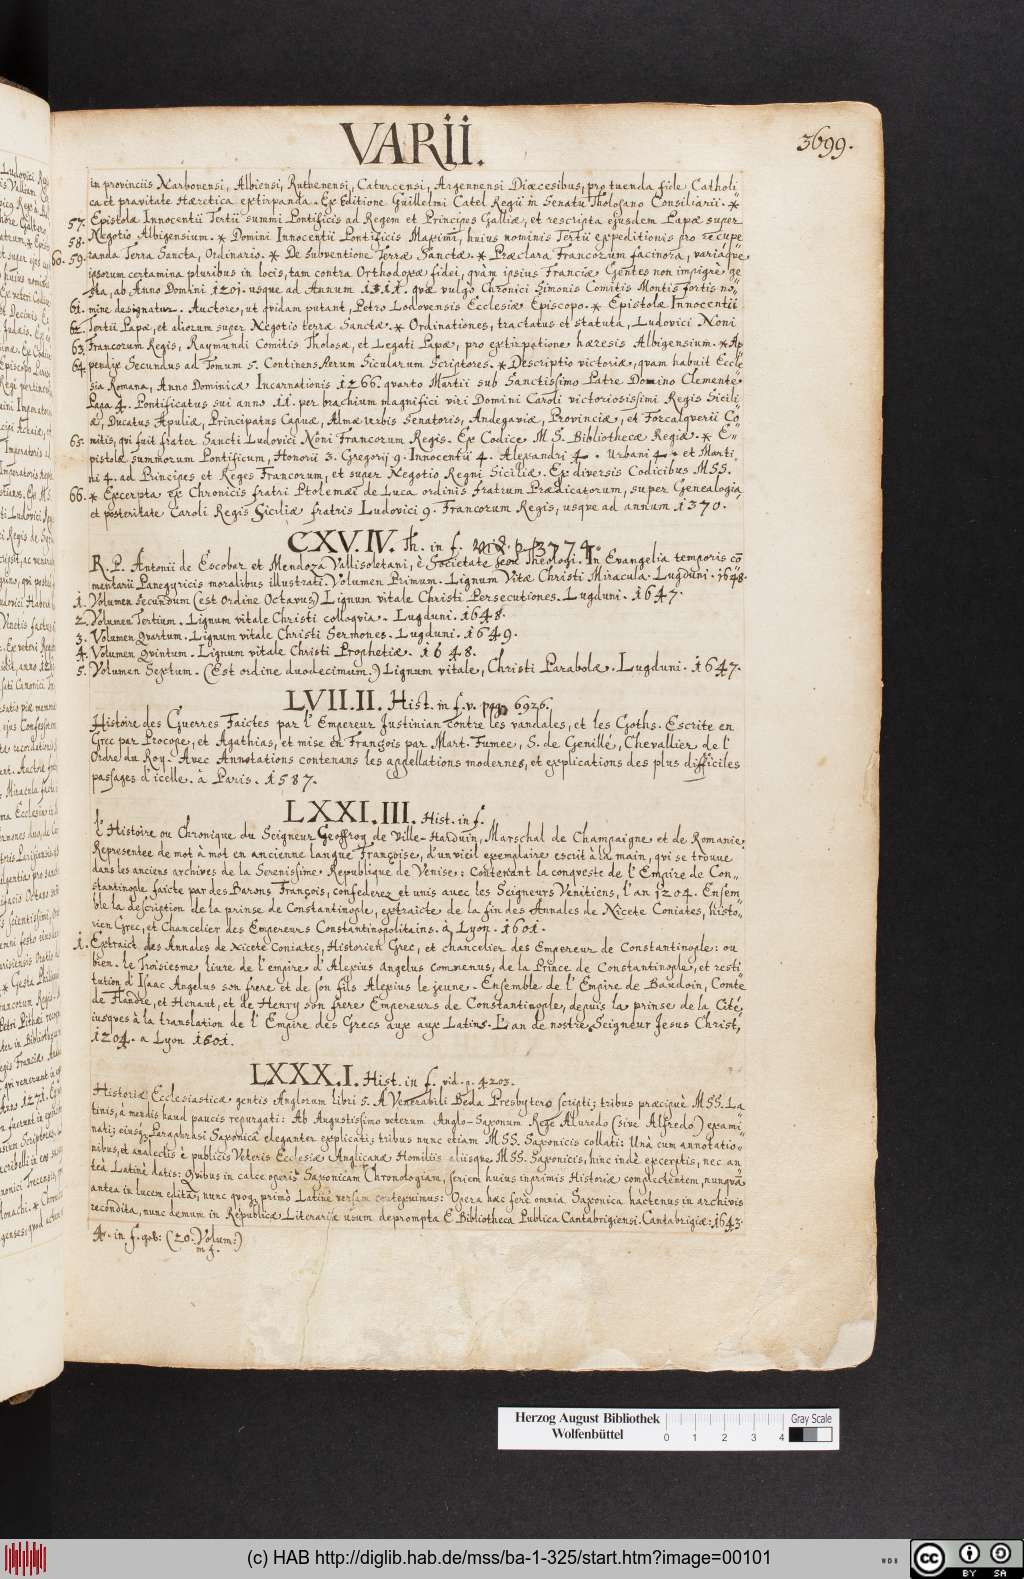 VARII.
3699.
in provinciis Narbonensi, Albiensi, Ruthenensi, Caturcensi, Argennensi Diœcesibus, pro tuenda fide Catholi
ca et pravitate Hæretica extirpanda. Ex Editione Guillelmi Catel Regii in Senatu Tholosano Consiliarii. *
57. Epistolæ Innocentii Tertii summi Pontificis ad Regem et Principes Galliæ, et rescripta ejusdem Papæ super
58. Negotio Albigensium. * Domini Innocentii Pontificis Maximi, huius nominis Tertii expeditionis pro recupe
60. 59. randa Terra Sancta, Ordinario. * De subventione Terræ Sanctæ. * Præclara Francorum facinora, variaque
ipsorum certamina pluribus in locis, tam contra Orthodoxæ fidei, quàm ipsius Franciæ Gentes non impigre ge
sta, ab Anno Domini 1201. usque ad Annum 1311. quæ vulgo Chronici Simonis Comitis Montis fortis no=
61. mine designatur. Auctore, ut quidam putant, Petro Lodovensis Ecclesiæ Episcopo. * Epistolæ Innocentii
62. Tertii Papæ, et aliorum super Negotio terræ Sanctæ. * Ordinationes, tractatus et statuta, Ludovici Noni
63. Francorum Regis, Raymundi Comitis Tholosæ, et Legati Papæ, pro extirpatione hæresis Albigensium. * Ap
64. pendix Secundus ad Tomum 5. Continens Rerum Sicularum Scriptores. * Descriptio victoriæ, quam habuit Eccle
sia Romana, Anno Dominicæ Incarnationis 1266. quarto Martii sub Sanctissimo Patre Domino Clemente
Papa 4. Pontificatus sui anno 11. per brachium magnifici viri Domini Caroli victoriosissimi Regis Sicili
æ, Ducatus Apuliæ, Principatus Capuæ, Almæ urbis Senatoris, Andegaviæ, Provinciæ, et Forcalquerii Co
65. mitis, qui fuit frater Sancti Ludovici Noni Francorum Regis. Ex Codice M S. Bibliothecæ Regiæ. * E=
pistolæ summorum Pontificum, Honorii 3. Gregorij 9. Innocentii 4. Alexandri 4. Urbani 4. et Marti
ni 4. ad Principes et Reges Francorum, et super Negotio Regni Siciliæ. Ex diversis Codicibus MSS.
66. * Excerpta ex Chronicis fratri Ptolemæi de Luca ordinis fratrum Prædicatorum, super Genealogia,
et posteritate Caroli Regis Siciliæ fratris Ludovici 9. Francorum Regis, usque ad annum 1370.
CXV. IV. Th. in f. vid. p. 3774.
R. P. Antonii de Escobar et Mendoza Vallisoletani, è Societate Jesu Theologi. In Evangelia temporis cō
mentarii Panegyricis moralibus illustrati. Volumen Primum. Lignum Vitæ Christi Miracula. Lugduni. 1648.
1. Volumen Secundum (est Ordine Octavus) Lignum vitale Christi Persecutiones. Lugduni. 1647.
2. Volumen Tertium. Lignum vitale Christi colloqvia. Lugduni. 1648.
3. Volumen Qvartum. Lignum vitale Christi Sermones. Lugduni. 1649.
4. Volumen Qvintum. Lignum vitale Christi Prophetiæ. 1648.
5. Volumen Sextum. (Est ordine duodecimum.) Lignum vitale, Christi Parabolæ. Lugduni. 1647.
LVII. II. Hist. in f. v. pag. 6926.
Histoire des Guerres Faictes par l' Empereur Justinian contre les vandales, et les Goths. Escrite en
Grec par Procope, et Agathias, et mise en François par Mart. Fumee, S. de Genillé, Chevallier de l'
Ordre du Roy. Avec Annotations contenans les appellations modernes, et explications des plus difficiles
passages d'icelle. à Paris. 1587.
LXXI. III. Hist. in f.
l' Histoire ou Chronique du Seigneur Geoffroy de Ville-Harduin, Marschal de Champaigne et de Romanie,
Representee de mot à mot en ancienne langue Françoise, d'un vieil exemplaire escrit à la main, qui se trouve
dans les anciens archives de la Serenissime Republique de Venise: Contenant la conqveste de l' Empire de Con=
stantinople faicte par des Barons François, confederez et unis avec les Seigneurs Venitiens, l'an 1204. Ensem
ble la description de la prinse de Constantinople, extraicte de la fin des Annales de Nicete Coniates, histo=
rien Grec, et Chancelier des Empereurs Constantinopolitains. à Lyon. 1601.
1. Extraict des Annales de Nicete Coniates, Historien Grec, et chancelier des Empereur de Constantinople: ou
bien. le Troisiesme livre de l' empire d' Alexius Angelus Comnenus, de la Prince de Constantinople, et resti
tution d' Isaac Angelus son frere et de son fils Alexius le jeune. Ensemble de l' Empire de Baudoin, Comte
de Flandre, et Henaut, et de Henry son frere Empereurs de Constantinople, depuis la prinse de la Cité,
jusques à la translation de l' Empire des Grecs aux aux Latins. L'an de nostre Seigneur Jesus Christ,
1204. a Lyon 1601.
LXXX. I. Hist. in f. vid. p. 4203.
Historiæ Ecclesiasticæ gentis Anglorum libri 5. A Venerabili Beda Presbytero scripti; tribus præcipuè MSS. La
tinis, à mendis haud paucis repurgati: Ab Augustissimo veterum Anglo-Saxonum Rege Aluredo (sive Alfredo) exami=
nati; eiusq; Paraphrasi Saxonica eleganter explicati; tribus nunc etiam MSS. Saxonicis collati: Unà cum annotatio=
nibus, et analectis è publicis Veteris Ecclesiæ Anglicanæ Homiliis aliisque MSS. Saxonicis, hinc indè excerptis, nec an
teà Latinè datis: Quibus in calce operis Saxonicam Chronologiam, seriem huius inprimis Historiæ complectentem, nunquã
antea in lucem editã, nunc quoq; primò Latinè versam contexuimus: Opera hæc ferè omnia Saxonica hactenus in archivis
recondita, nunc demum in Reipublicæ Literariæ usum deprompta E Bibliotheca Publica Cantabrigiensi. Cantabrigiæ: 1643.
4. in f. got: (20. Volum:)
m f.
Herzog August Bibliothek
Wolfenbüttel
0 1 2 3 4
Gray Scale
(c) HAB http://diglib.hab.de/mss/ba-1-325/start.htm?image=00101
WDB
cc BY SA